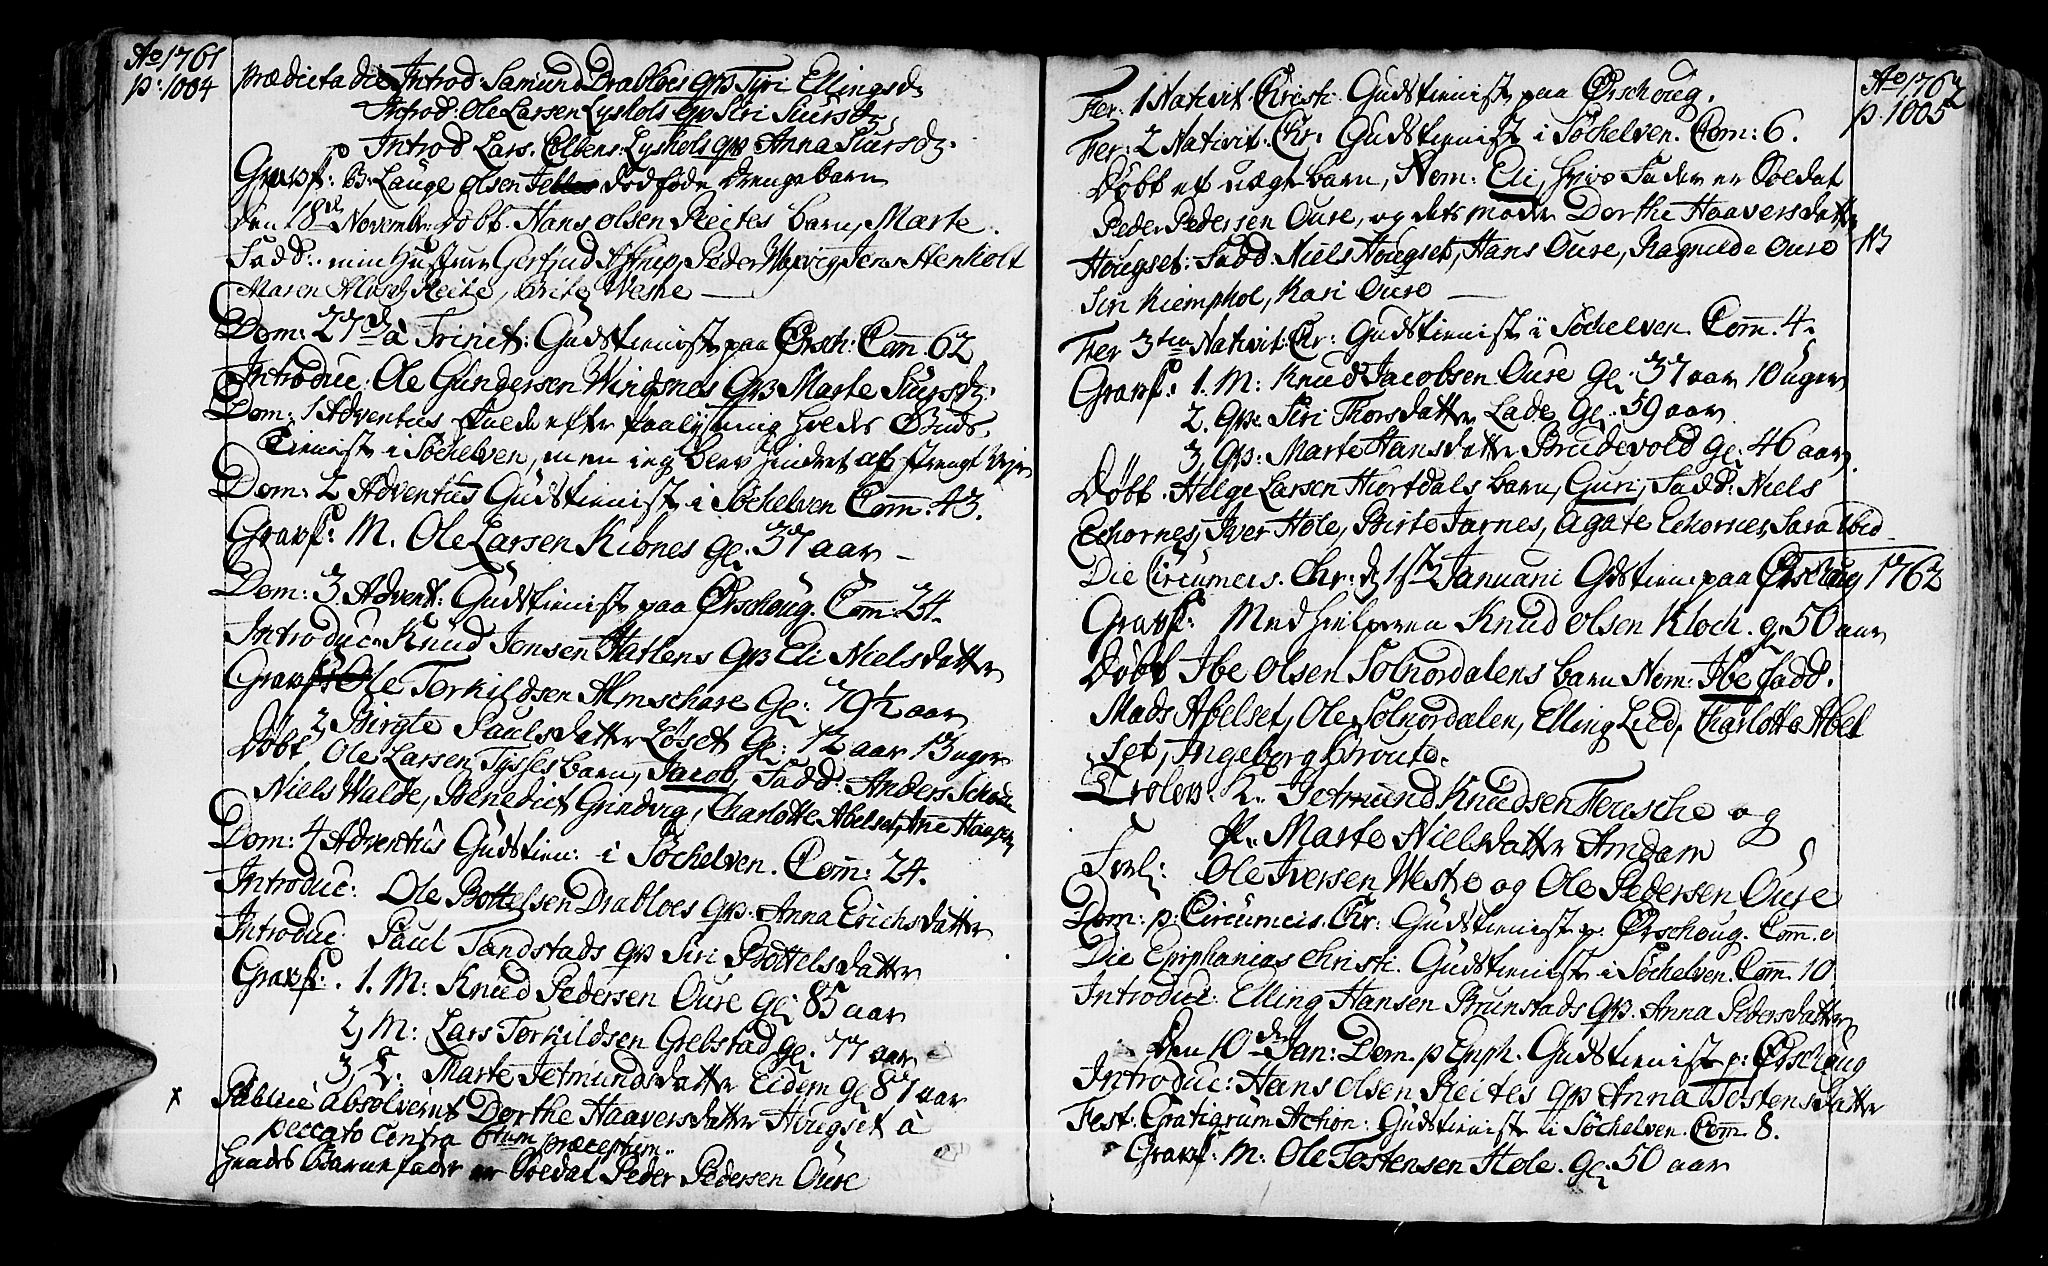 Ao 1761
p: 1004
prædicta die Introd: Samund Drabloes qvs Tyri Ellingsd
Introd: Ole Larsen Lyshols qv Siri Siursd
Introd Lars Colbens: Lyshols qvs Anna Siursd.
Gravf: B: Lauge Olsen dødføde drengebarn
Den 18de November døbt Hans Olsen Reites barn, Marte.
Fadd: min Hustrue Gertrud Peder Jens Stenholt
Maren Reite, Brite Westre
Dom: 27de à Trinit: Gudstienist paa Ørsch: Com 62
Introduc: Ole Gundersen Wingsnes qvs Marte Siursd.
Dom: 1 Adventus skulde efter paalysning holdes Guds
tienist i Søchelven, men ieg blev hindret af strengt Vejr
Dom: 2 Adventus Gudstienist i Søchelven Com: 43.
Gravf: M. Ole Larsen Kibnes gl. 37 aar –
Dom: 3 Advent: Gudstienist paa Ørschoug. Com: 24.
Introduc. Knud Jensen Hatlens qvs Eli Nielsdatter
Gravf: Ole Torkildsen Almschare gl: 79½ aar
2 Birgte Paulsdatter Løset gl: 12 aar 13 uger
Døbt Ole Larsen Tysses barn, Jacob, Fadd: Anders
Niels Walde, Benedict Grindvig, Charlotte Abelset, Ane
Dom: 4 Adventus Gudstien: i Søchelven. Com: 24.
Introduc: Ole Bottelsen Drabloes qvs. Anna Erichsdatter
Introduc: Paul Tandstads qvs Siri Bottelsdatter
Gravf: 1. M: Knud Pedersen Oure gl: 85 aar
2, M: Lars Torkildsen Grebstad gl. 77 aar
3 Marte Jetmundsdatter Eidem gl 87 aar
x Publicè absolverit Dorthe Haaversdatter Hougset à
peccato contra 6tum præceptum.
hendes Barnefader er Soldat Peder Pedersen Oure
Ao 1762
p. 1005
Fer: 1 Nativit. Christi Gudstienist paa Ørschoug.
Fer: 2 Nativit. Chr: Gudstienist i Søchelven. Com: 6.
Døbt et uægte barn, Nom: Eli, hvis Fader er Soldat
Peder Pedersen Oure, og dets moder Dorthe Haaversdatter
Hougset: Fadd: Niels Hougset, Hans Oure, Ragnilde Oure
Siri Kiemphol, Kari Oure
Fer 3tia Nativit: Chr: Gudstienist i Søchelven Com. 4.
Gravf: 1. M: Knud Jacobsen Oure gl. 37 aar 10 uger
2. qve Siri Thorsdatter Lade gl. 59 aar
3 qvs: Marte Hansdatter Brudevold gl. 46 aar.
Døbt. Helge Larsen Hiortdals barn, Guri, Fadd: Niels
Echornes, Iver Hole, Birte Jarnes, Agate Echornes, Sara ibid
Die Circumcis. Chr: d 1ste Januarii Gdstien: paa Ørschoug 1762
Gravf: Medhielperen Knud Olsen Kloch. gl. 50 aar
Døbt Ibe Olsen Solnordalens barn Nom: Ibe Fadd.
Mads Abelset, Ole Solnordalen, Elling Lied, Charlotta Abel
set, Ingeborg Groute.
Trolov. K. Jetmund Knudsen Feresche og
P. Marte Nielsdatter Amdam
Forl: Ole Iversen Westre og Ole Pedersen Oure
Dom: p: Circumcis. Chr: Gudstienist p. Ørschoug. Com. 0
Die Epiphanias Christi. Gudstienist i Søchelven. Com. 10
Introduc: Elling Hansen Brunstads qvs. Anna Pedersdatter
Den 10de Jan: Dom. p Epiph. Gudstienist p: Ørschoug
Introduc: Hans Olsen Reites qvs Anna Tostensdatter
Fest. Gratiarum Action: Gudstienist i Søchelven. Com 8.
Gravf: M: Ole Tostensen Hole. gl. 50 aar